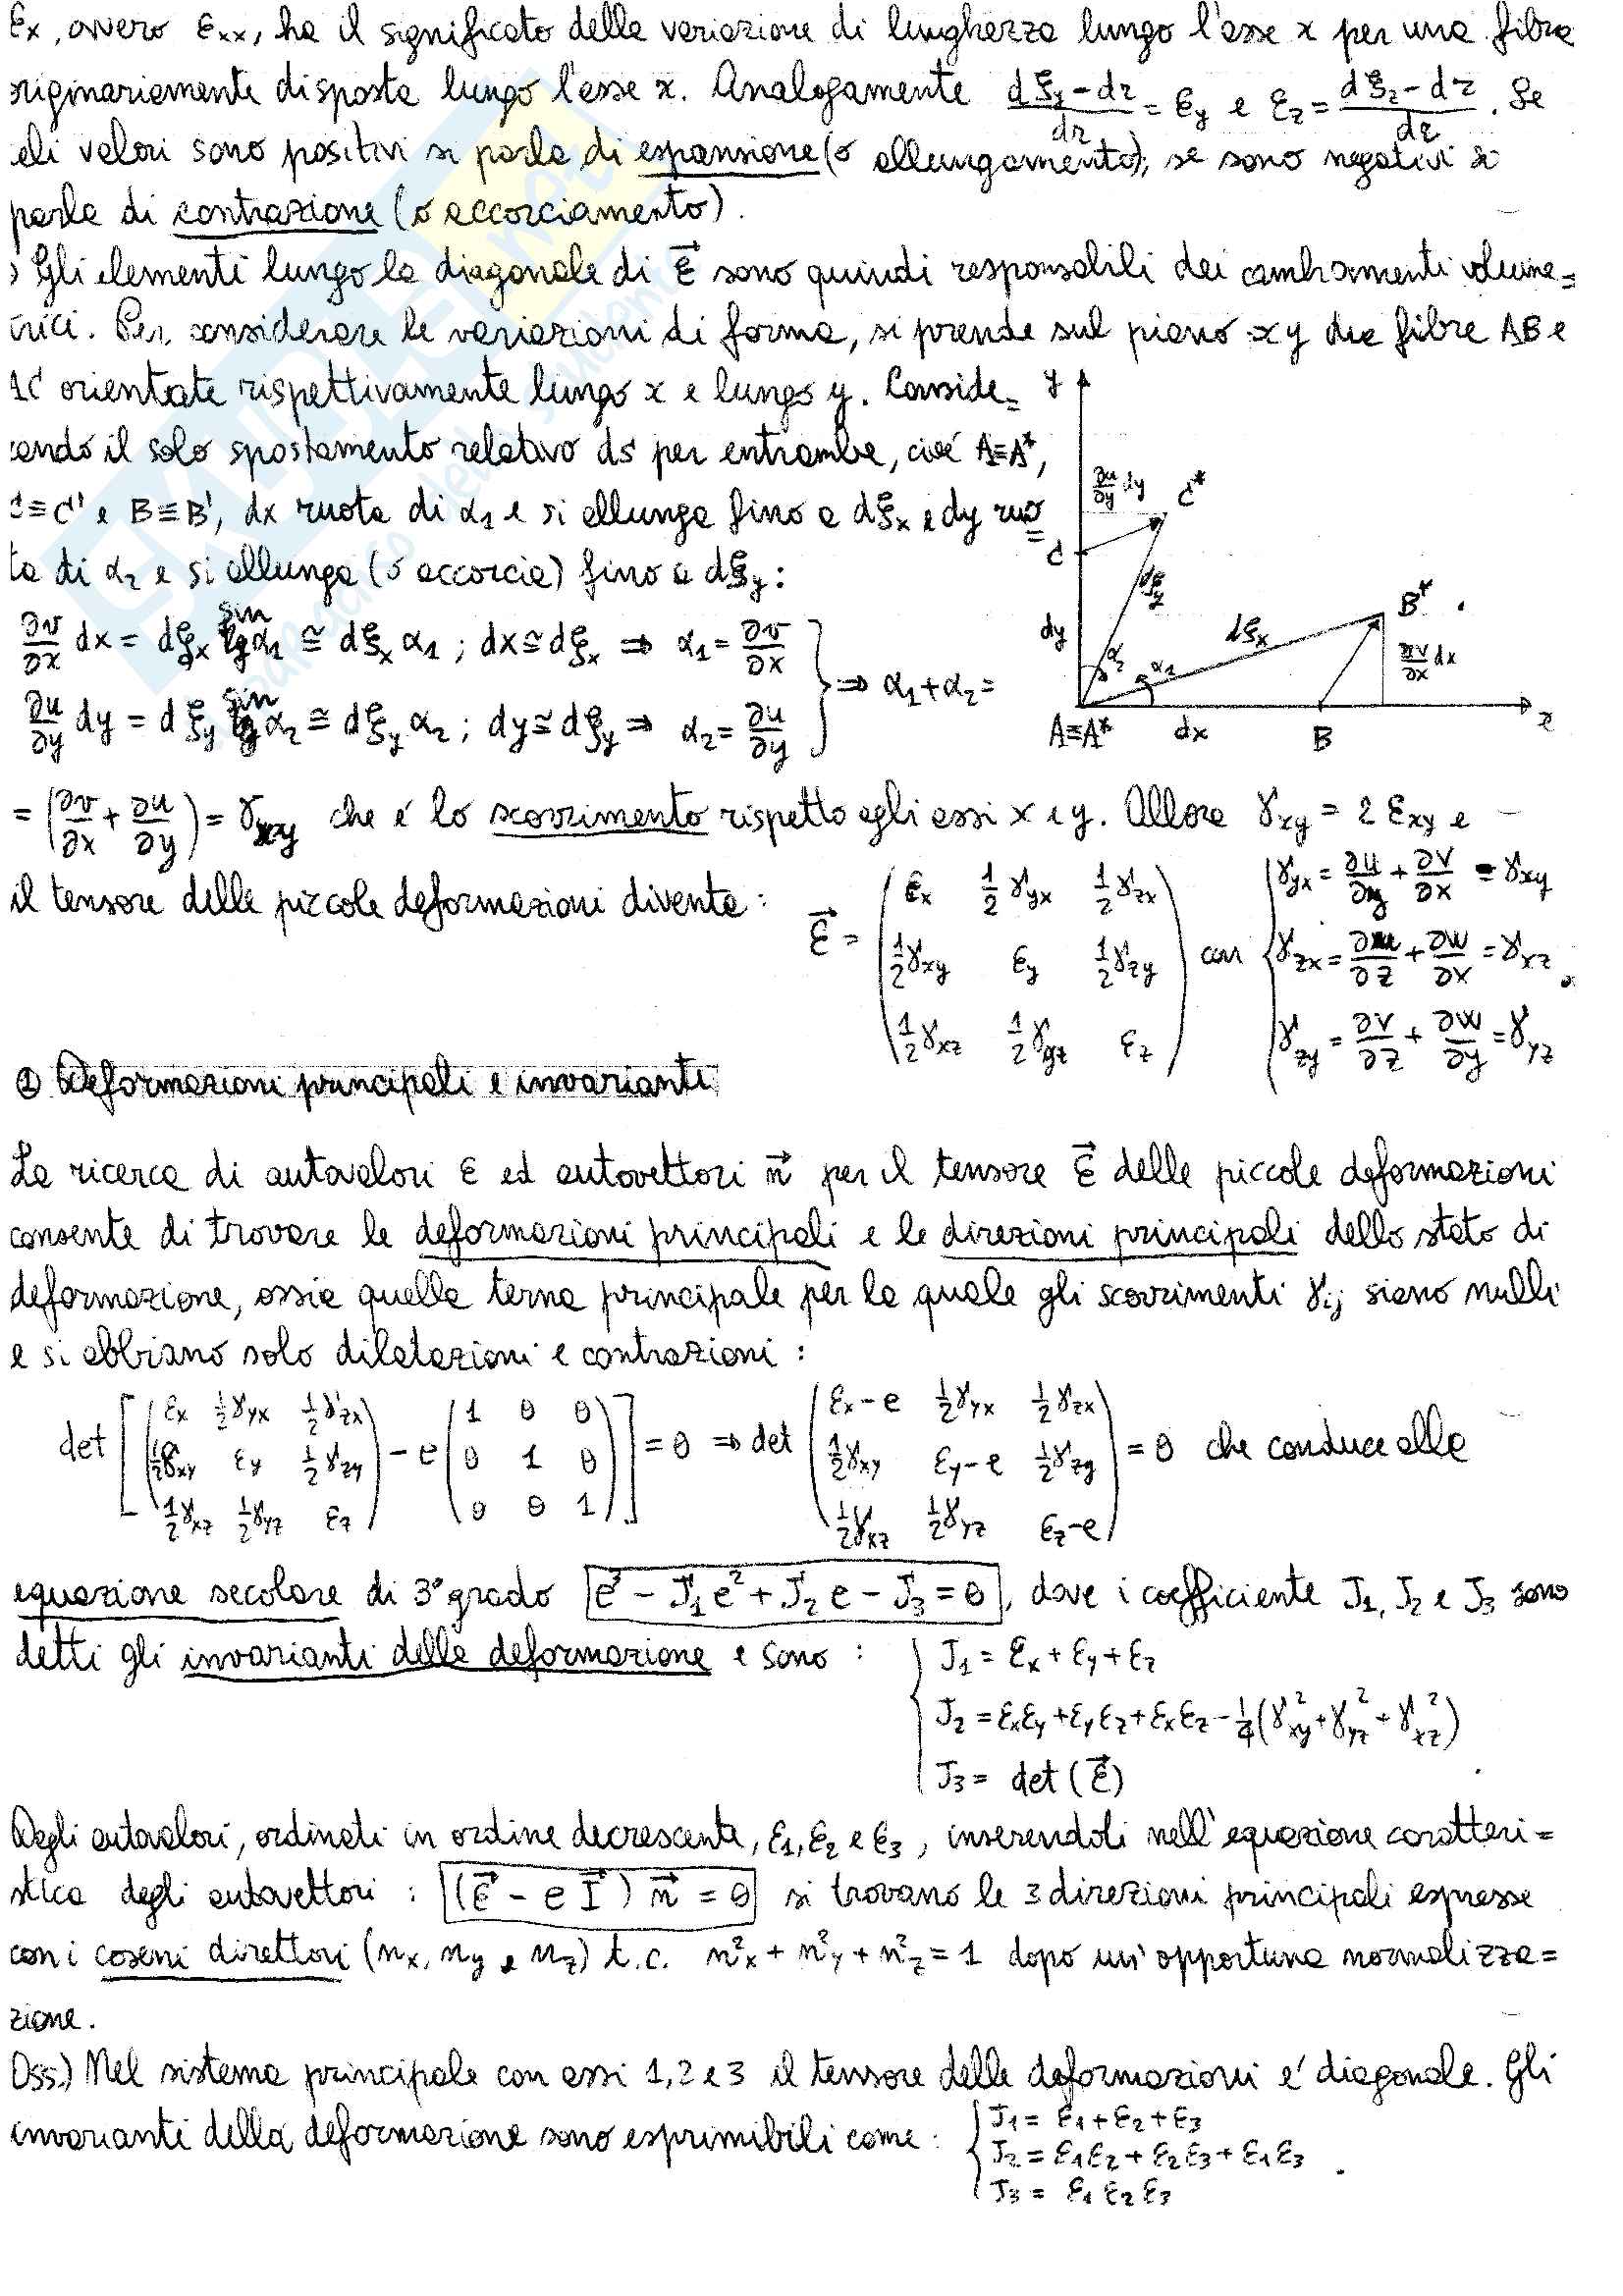 εx, ovvero εxx, ha il significato della variazione di lunghezza lungo l'asse x per una fibra
originariamente disposta lungo l'asse x. Analogamente (dξy - dz)/dz = εy e εz = (dξz - dz)/dz. Se
gli valori sono positivi si parla di espansione (o allungamento); se sono negativi si
parla di contrazione (o accorciamento).
Gli elementi lungo la diagonale di ε⃗ sono quindi responsabili dei cambiamenti volume=
trici. Per considerare le variazioni di forma, si prende sul piano xy due fibre AB e
AC orientate rispettivamente lungo x e lungo y. Conside=
rando il solo spostamento relativo ds per entrambe, cioè A≡A*,
C≡C' e B≡B', dx ruota di α1 e si allunga fino a dξx e dy ruo=
ta di α2 e si allunga (o accorcia) fino a dξy:
∂v/∂x dx = dξx sin α1 ≅ dξx α1 ; dx ≅ dξx ⇒ α1 = ∂v/∂x
∂u/∂y dy = dξy sin α2 ≅ dξy α2 ; dy ≅ dξy ⇒ α2 = ∂u/∂y } ⇒ α1+α2 =
y
∂u/∂y dy
C*
C
dξy
dy
α2
α1
dξx
B*
∂v/∂x dx
A≡A*
dx
B
x
= (∂v/∂x + ∂u/∂y) = γxy che è lo scorrimento rispetto agli assi x e y. Allora γxy = 2 εxy e
il tensore delle piccole deformazioni diventa:
ε⃗ = (εx ½γyx ½γzx
½γxy εy ½γzy
½γxz ½γyz εz)
con { γyx = ∂u/∂y + ∂v/∂x = γxy
γzx = ∂u/∂z + ∂w/∂x = γxz
γzy = ∂v/∂z + ∂w/∂y = γyz
① Deformazioni principali e invarianti
La ricerca di autovalori ε ed autovettori n⃗ per il tensore ε⃗ delle piccole deformazioni
consente di trovare le deformazioni principali e le direzioni principali dello stato di
deformazione, ossia quella terna principale per la quale gli scorrimenti γij siano nulli
e si abbiano solo dilatazioni e contrazioni:
det [(εx ½γyx ½γzx
½γxy εy ½γzy
½γxz ½γyz εz) - e (1 0 0
0 1 0
0 0 1)] = 0 ⇒ det (εx-e ½γyx ½γzx
½γxy εy-e ½γzy
½γxz ½γyz εz-e) = 0 che conduce alla
equazione secolare di 3° grado e³ - J1e² + J2e - J3 = 0, dove i coefficiente J1, J2 e J3 sono
detti gli invarianti della deformazione e sono :
{ J1 = εx + εy + εz
J2 = εxεy + εyεz + εxεz - ¼(γ²xy + γ²yz + γ²xz)
J3 = det (ε⃗)
Dagli autovalori, ordinati in ordine decrescente, ε1, ε2 e ε3, inserendoli nell'equazione caratteri=
stica degli autovettori : (ε⃗ - e I⃗) n⃗ = 0 si trovano le 3 direzioni principali espresse
con i coseni direttori (nx, ny e nz) t.c. n²x + n²y + n²z = 1 dopo un'opportuna normalizza=
zione.
Oss.) Nel sistema principale con assi 1, 2 e 3 il tensore delle deformazioni e' diagonale. Gli
invarianti della deformazione sono esprimibili come:
{ J1 = ε1 + ε2 + ε3
J2 = ε1ε2 + ε2ε3 + ε1ε3
J3 = ε1 ε2 ε3